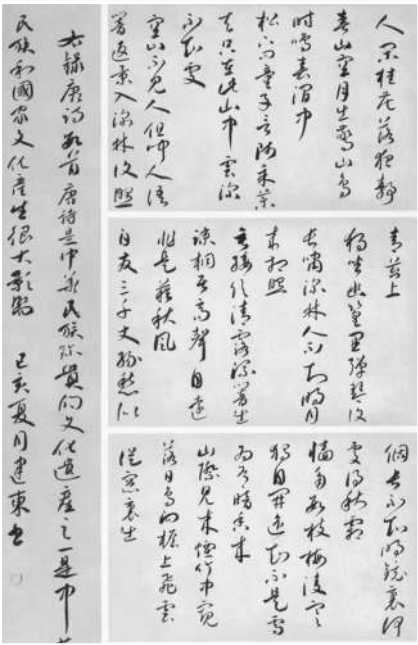 人閑桂花落夜靜
春山空月出驚山鳥
時鳴春澗中
松下問童子言師采藥
去只在此山中雲深
不知處
空山不見人但聞人語
響返景入深林復照
青苔上
獨坐幽篁里彈琴復
長嘯深林人不知明月
來相照
垂緌飲清露流響出
疏桐居高聲自遠
非是藉秋風
白髮三千丈緣愁似
個長不知明鏡裏何
處得秋霜
牆角數枝梅凌寒
獨自開遙知不是雪
為有暗香來
山際見來煙竹中窺
落日鳥向檐上飛雲
從窗裏出
右錄唐詩數首唐詩是中華民族珍貴的文化遺產之一是中
民族和國家文化產生很大影響 己亥夏月建東書